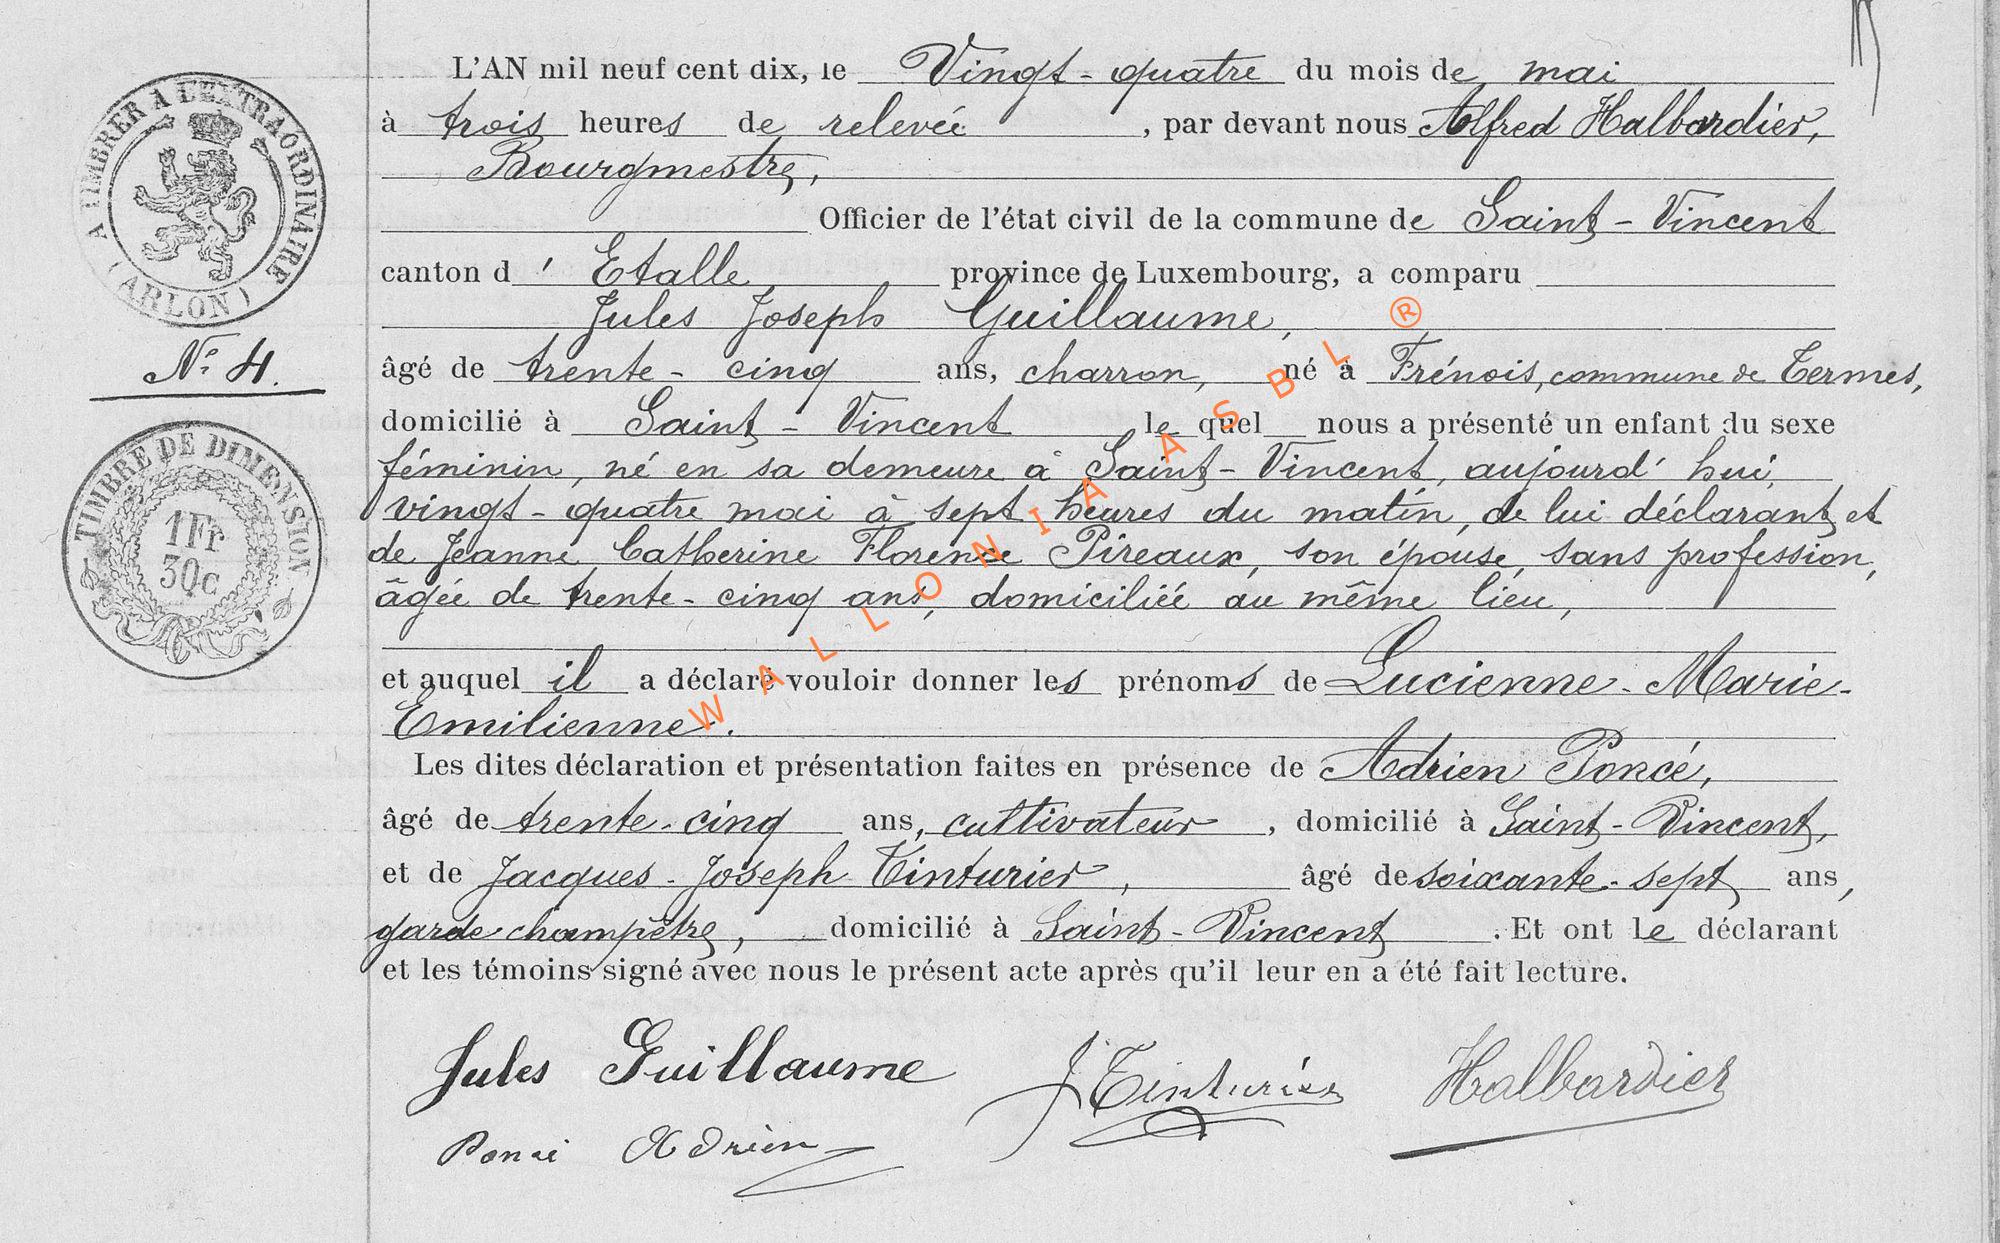 L'AN mil neuf cent dix, le Vingt-quatre du mois de mai
à trois heures de relevée, par devant nous Alfred Halbardier,
Bourgmestre,
Officier de l'état civil de la commune de Saint-Vincent
canton d'Etalle province de Luxembourg, a comparu
Jules Joseph Guillaume,
âgé de trente-cinq ans, charron, né à Frénois, commune de Termes,
domicilié à Saint-Vincent lequel nous a présenté un enfant du sexe
féminin, né en sa demeure à Saint-Vincent, aujourd'hui,
vingt-quatre mai à sept heures du matin, de lui déclarant et
de Jeanne Catherine Florence Pireaux, son épouse, sans profession,
âgée de trente-cinq ans, domiciliée au même lieu,
et auquel il a déclaré vouloir donner les prénoms de Lucienne-Marie-
Emilienne.
Les dites déclaration et présentation faites en présence de Adrien Poncé,
âgé de trente-cinq ans, cultivateur, domicilié à Saint-Vincent,
et de Jacques-Joseph Tinturier, âgé de soixante-sept ans,
garde champêtre, domicilié à Saint-Vincent. Et ont le déclarant
et les témoins signé avec nous le présent acte après qu'il leur en a été fait lecture.
Jules Guillaume J Tinturier Halbardier
Poncé Adrien
A TIMBRER A L'EXTRAORDINAIRE
(ARLON)
N° 4.
TIMBRE DE DIMENSION
1Fr
30c
WALLONIA ASBL ®